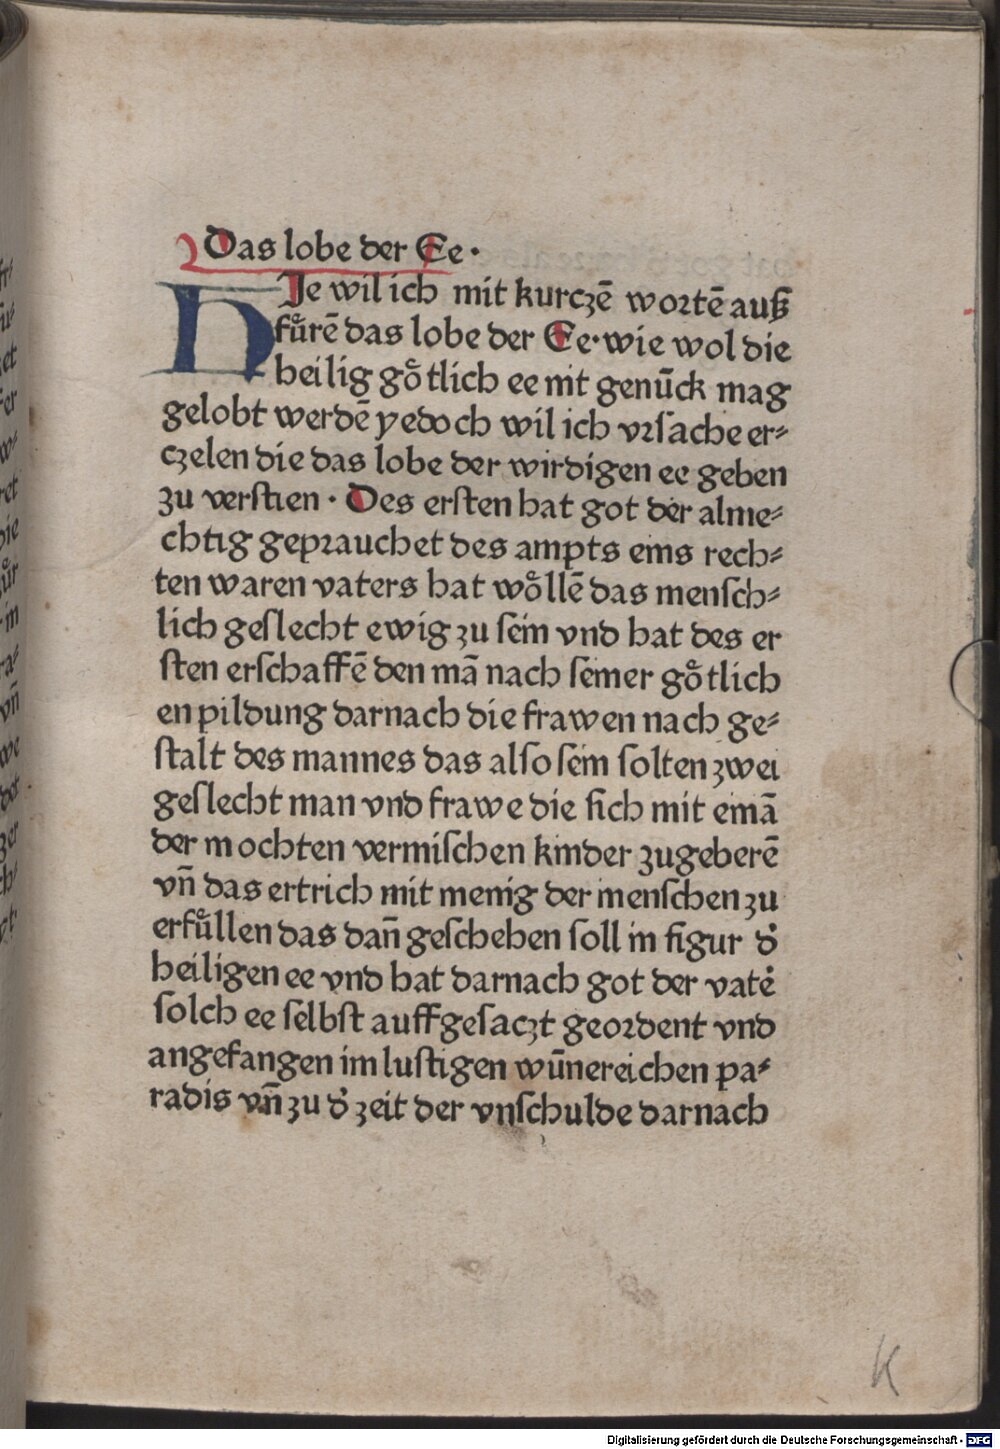 Das lobe der Ee·
HJe wil ich mit kurczē wortē auß
fuͤrē das lobe der Ee·wie wol die
heilig goͤtlich ee nit genūck mag
gelobt werdē yedoch wil ich vrſache er⸗
czelen die das lobe der wirdigen ee geben
zu verſtien · Des erſten hat got der alme⸗
chtig geprauchet des ampts eins rech⸗
ten waren vaters hat woͤllē das menſch⸗
lich geſlecht ewig zu ſein vnd hat des er
ſten erſchaffē den mā nach ſeiner goͤtlich
en pildung darnach die frawen nach ge⸗
ſtalt des mannes das alſo ſein ſolten zwei
geſlecht man vnd frawe die ſich mit einā
der mochten vermiſchen kinder zugeberē
vn̄ das ertrich mit menig der menſchen zu
erfuͤllen das dan̄ geſchehen ſoll in figur d̕
heiligen ee vnd hat darnach got der vate̕
ſolch ee ſelbſt auffgeſaczt geordent vnd
angefangen im luſtigen wūnereichen pa⸗
radis vn̄ zu d̕ zeit der vnſchulde darnach
K
Digitalisierung gefördert durch die Deutsche Forschungsgemeinschaft - DFG